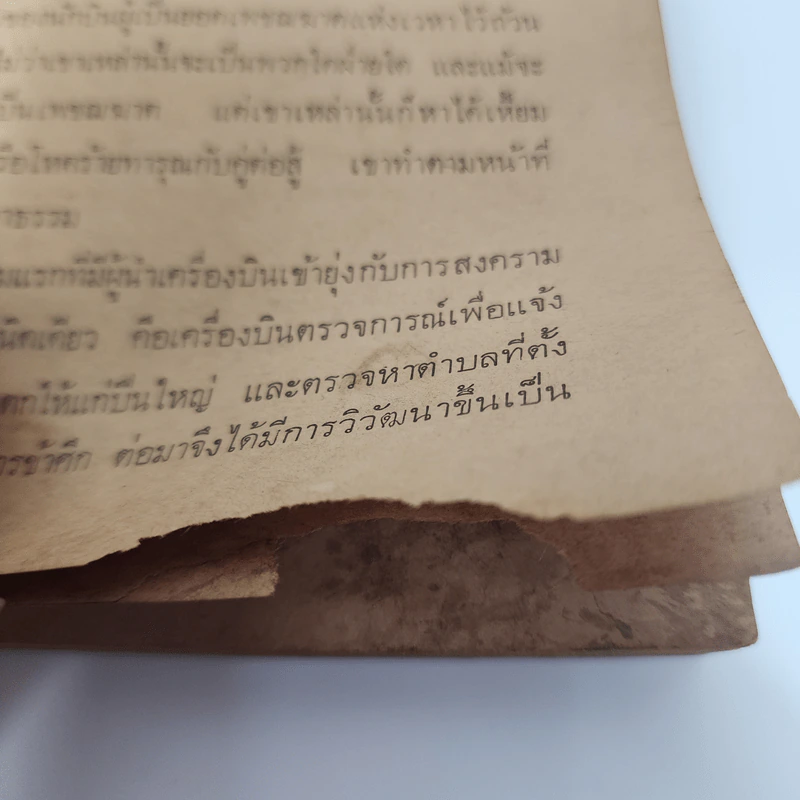 ของนักบินผู้เป็นยอดเพชฌฆาตแห่งเวหาไว้ถ้วน
ไม่ว่าเขาเหล่านั้นจะเป็นพวกใดฝ่ายใด และแม้จะ
เป็นเพชฌฆาต แต่เขาเหล่านั้นก็หาได้เหี้ยม
หรือโหดร้ายทารุณกับคู่ต่อสู้ เขาทำตามหน้าที่
ธรรม
แรกที่มีผู้นำเครื่องบินเข้ายุ่งกับการสงคราม
นิดเดียว คือเครื่องบินตรวจการณ์เพื่อแจ้ง
ตกให้แก่ปืนใหญ่ และตรวจหาตำบลที่ตั้ง
การข้าศึก ต่อมาจึงได้มีการวิวัฒนาขึ้นเป็น